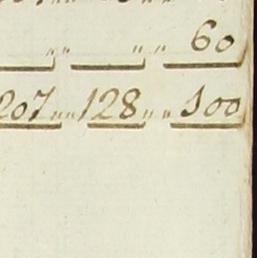 „ „ „ „ 60
207 „ 128 „ 100